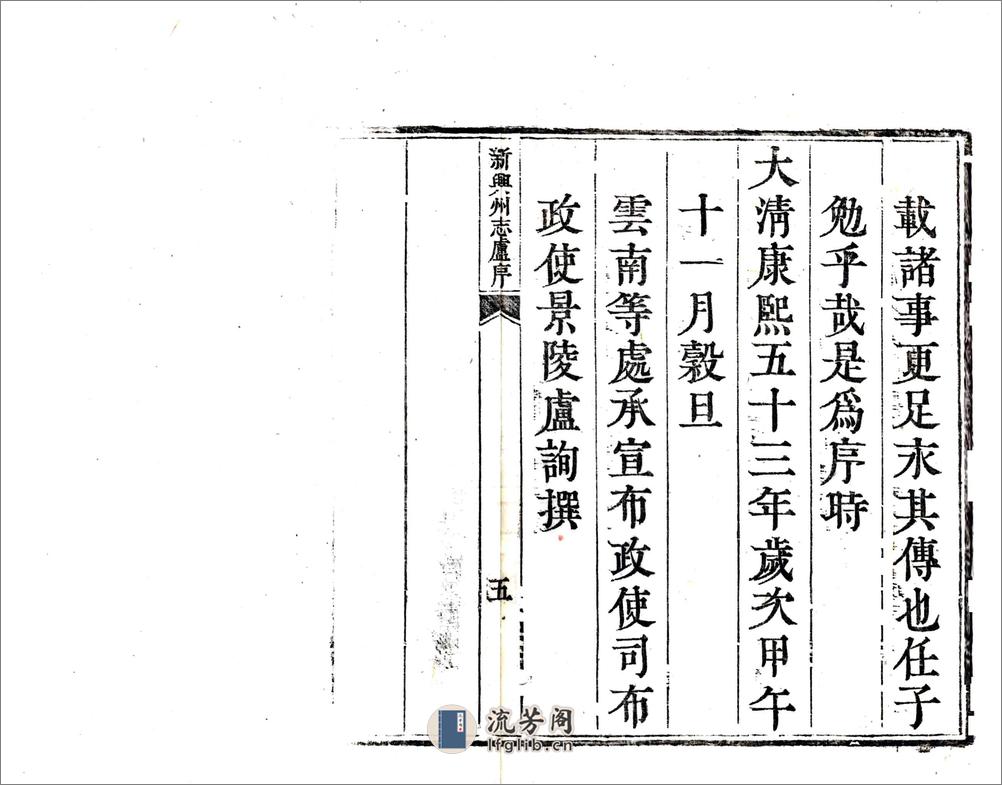 載諸事更足永其傳也任子
勉乎哉是爲序時
大淸康熙五十三年歲次甲午
十一月穀旦
雲南等處承宣布政使司布
政使景陵盧詢撰
新興州志盧序
五
流芳阁
lfglib.cn